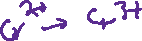 Cr²⁺ → Cr³⁺